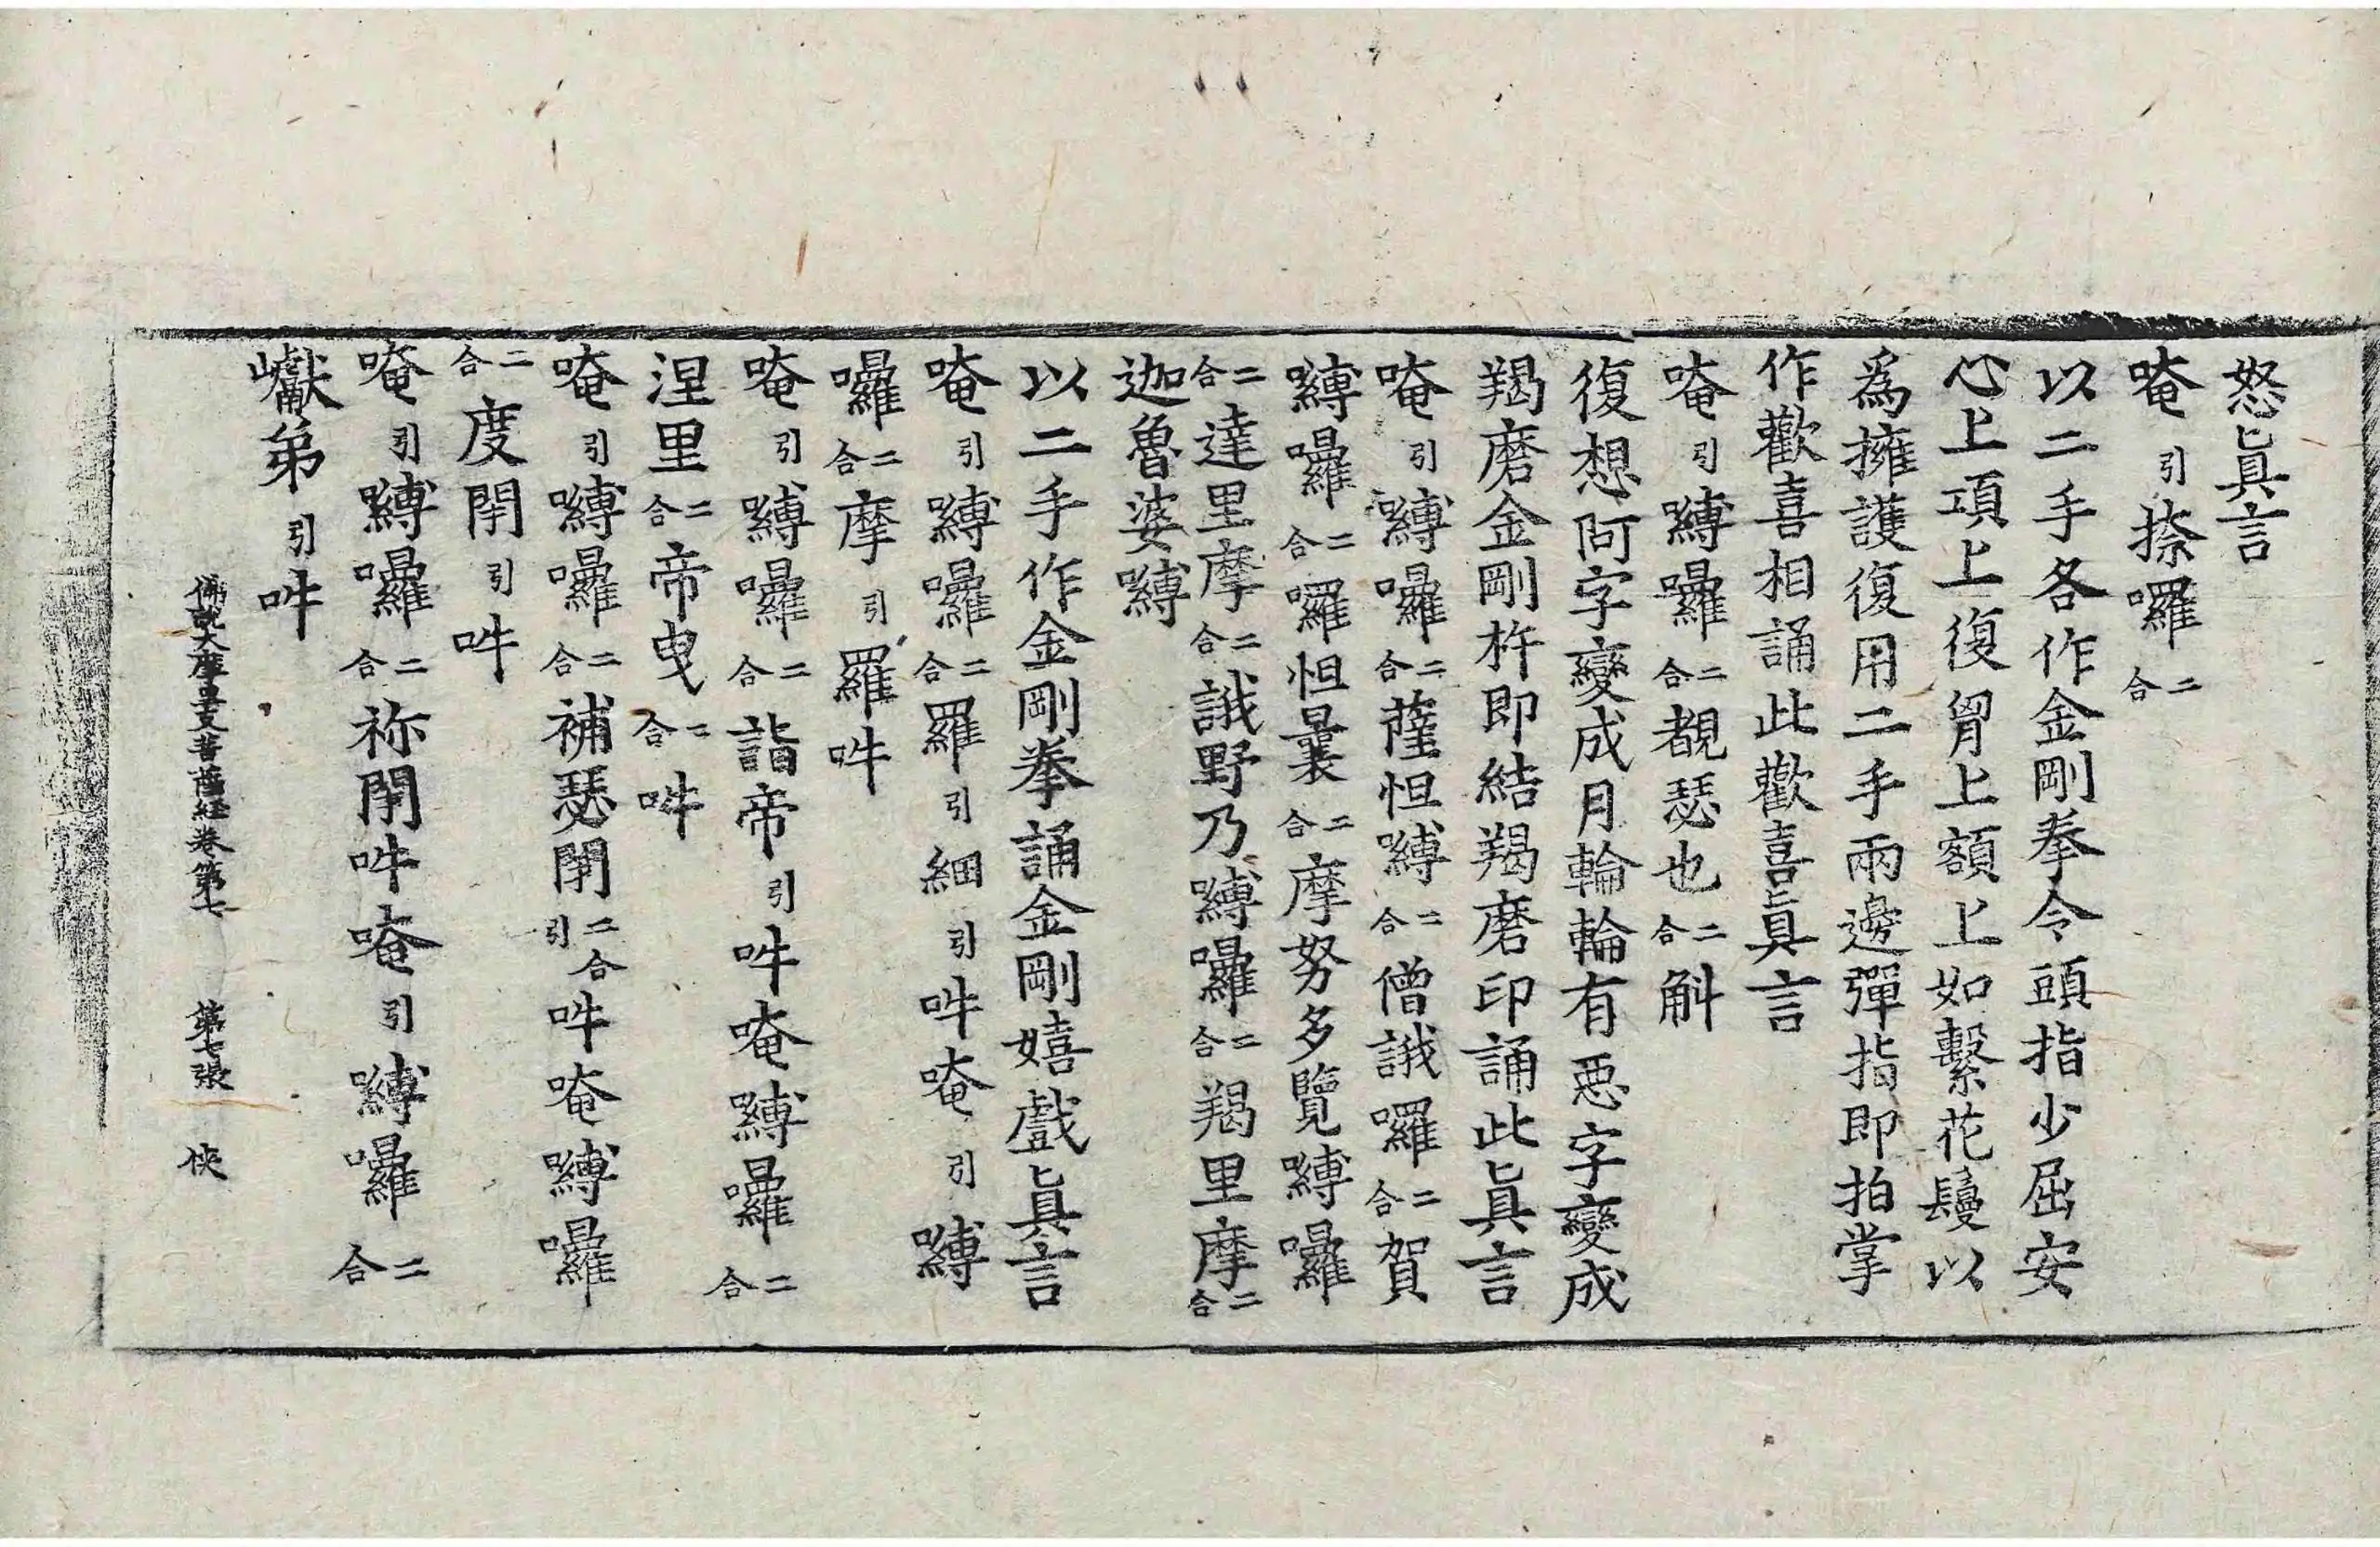 怒眞言
唵引捺囉二合
以二手各作金剛拳令頭指少屈安
心上項上復胷上額上如繫花鬘以
爲擁護復用二手兩邊彈指即拍掌
作歡喜相誦此歡喜眞言
唵引嚩囉二合覩瑟也二合斛
復想阿字變成月輪輪有惡字變成
羯磨金剛杵即結羯磨印誦此眞言
唵引嚩囉二合薩怛嚩二合僧誐囉二合賀
嚩囉二合囉怛曩二合摩努多覽嚩囉
二合達里摩二合誐野乃嚩囉二合羯里摩二合
迦魯婆嚩
以二手作金剛拳誦金剛嬉戲眞言
唵引嚩囉二合羅引細引吽唵引嚩
囉二合摩引羅吽
唵引嚩囉二合詣帝引吽唵嚩囉二合
涅里二合帝曳二合吽
唵引嚩囉二合補瑟閉二合引吽唵嚩囉
二合度閉引吽
唵引嚩囉二合祢閉吽唵引嚩囉二合
巘弟引吽
佛說大摩里支菩薩經卷第七 第七張 俠